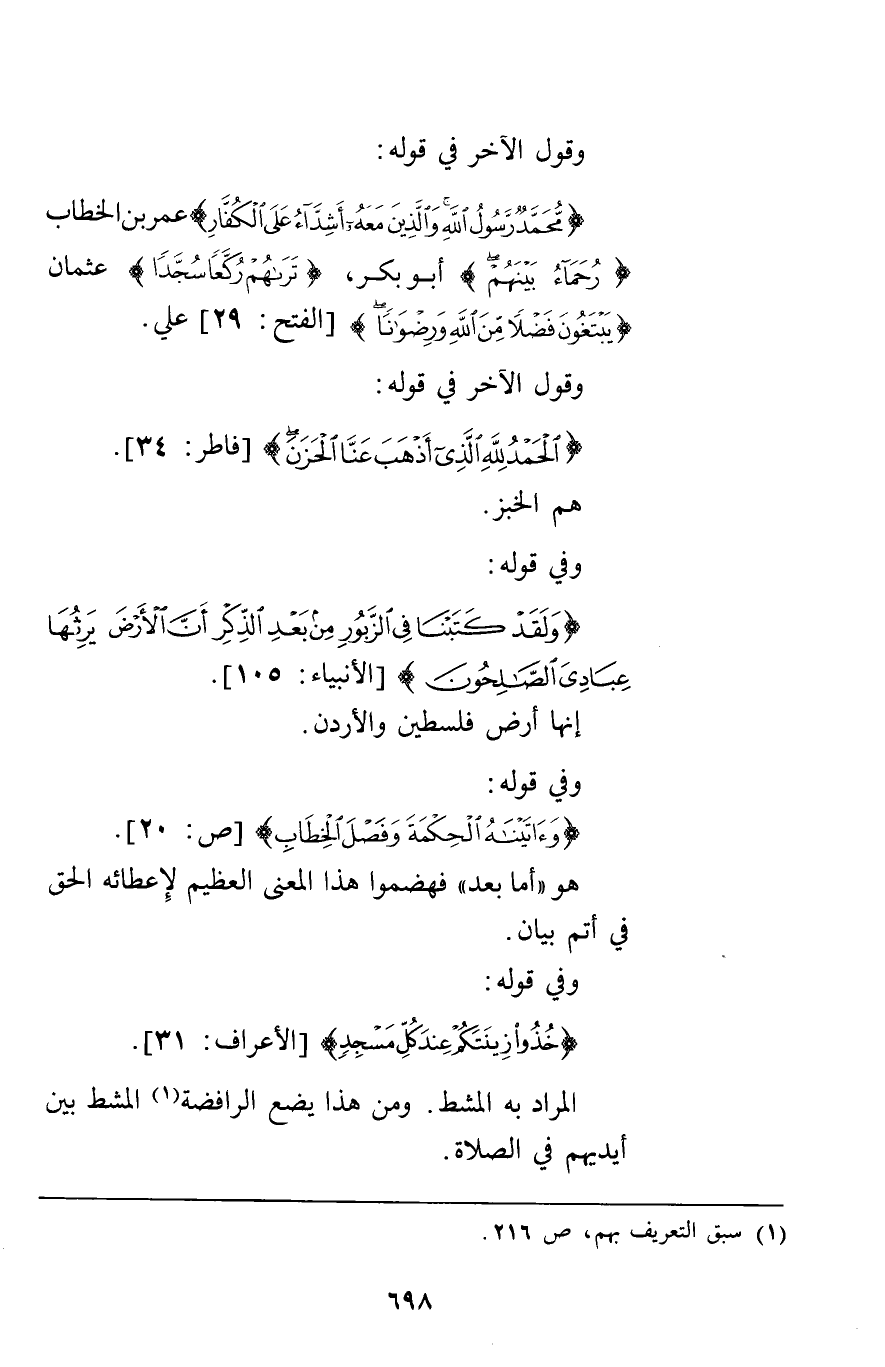 وقول الآخر في قوله:
﴿مُّحَمَّدٌ رَّسُولُ ٱللَّهِ ۚ وَٱلَّذِينَ مَعَهُۥٓ أَشِدَّآءُ عَلَى ٱلْكُفَّارِ﴾ عمر بن الخطاب
﴿رُحَمَآءُ بَيْنَهُمْ ۖ﴾ أبو بكر، ﴿تَرَىٰهُمْ رُكَّعًا سُجَّدًا﴾ عثمان
﴿يَبْتَغُونَ فَضْلًا مِّنَ ٱللَّهِ وَرِضْوَٰنًا ۖ﴾ [الفتح: ٢٩] علي.
وقول الآخر في قوله:
﴿ٱلْحَمْدُ لِلَّهِ ٱلَّذِىٓ أَذْهَبَ عَنَّا ٱلْحَزَنَ ۖ﴾ [فاطر: ٣٤].
هم الخبز.
وفي قوله:
﴿وَلَقَدْ كَتَبْنَا فِى ٱلزَّبُورِ مِنۢ بَعْدِ ٱلذِّكْرِ أَنَّ ٱلْأَرْضَ يَرِثُهَا
عِبَادِىَ ٱلصَّٰلِحُونَ﴾ [الأنبياء: ١٠٥].
إنها أرض فلسطين والأردن.
وفي قوله:
﴿وَءَاتَيْنَٰهُ ٱلْحِكْمَةَ وَفَصْلَ ٱلْخِطَابِ﴾ [ص: ٢٠].
هو «أما بعد» فهضموا هذا المعنى العظيم لإعطائه الحق
في أتم بيان.
وفي قوله:
﴿خُذُوا۟ زِينَتَكُمْ عِندَ كُلِّ مَسْجِدٍ﴾ [الأعراف: ٣١].
المراد به المشط. ومن هذا يضع الرافضة(١) المشط بين
أيديهم في الصلاة.
(١) سبق التعريف بهم، ص ٢١٦.
٦٩٨